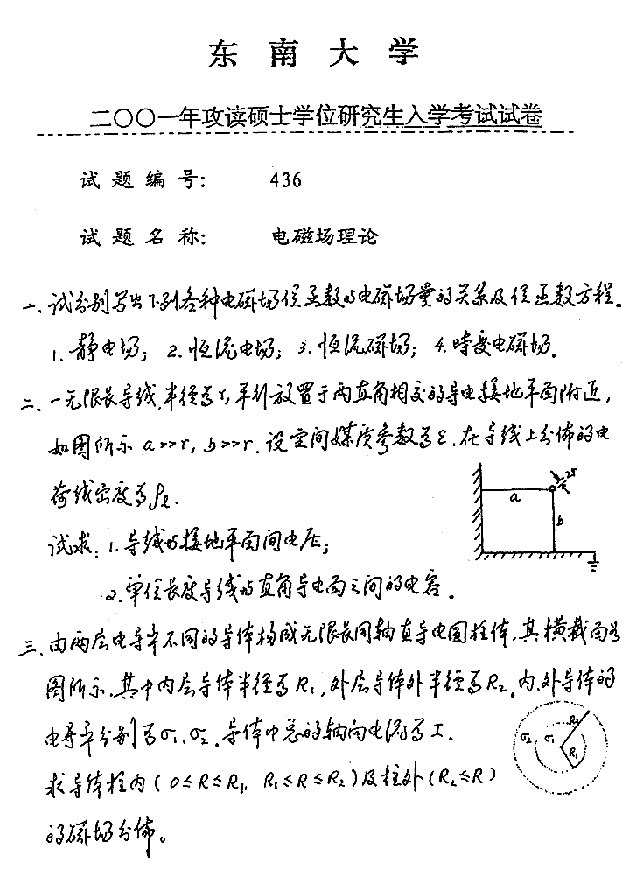 东南大学
二〇〇一年攻读硕士学位研究生入学考试试卷
试题编号: 436
试题名称: 电磁场理论
一、试分别写出下列各种电磁场位函数与电磁场量的关系及位函数方程.
1.静电场; 2.恒流电场; 3.恒流磁场; 4.时变电磁场.
二、一无限长导线,半径为r,平行放置于两直角相交的导电接地平面附近,
如图所示 a>>r, b>>r. 设空间媒质参数为ε. 在导线上分佈的电
荷线密度为ρl.
试求: 1.导线与接地平面间电压;
2.单位长度导线与直角导电面之间的电容.
a
b
2r
三、由两层电导率不同的导体构成无限长同轴直导电圆柱体,其横截面如
图所示.其中内层导体半径为R1,外层导体外半径为R2,内、外导体的
电导率分别为σ1、σ2.导体中总的轴向电流为I.
求导体柱内(0≤R≤R1, R1≤R≤R2)及柱外(R2≤R)
的磁场分佈。
σ2 σ1 R1 R2